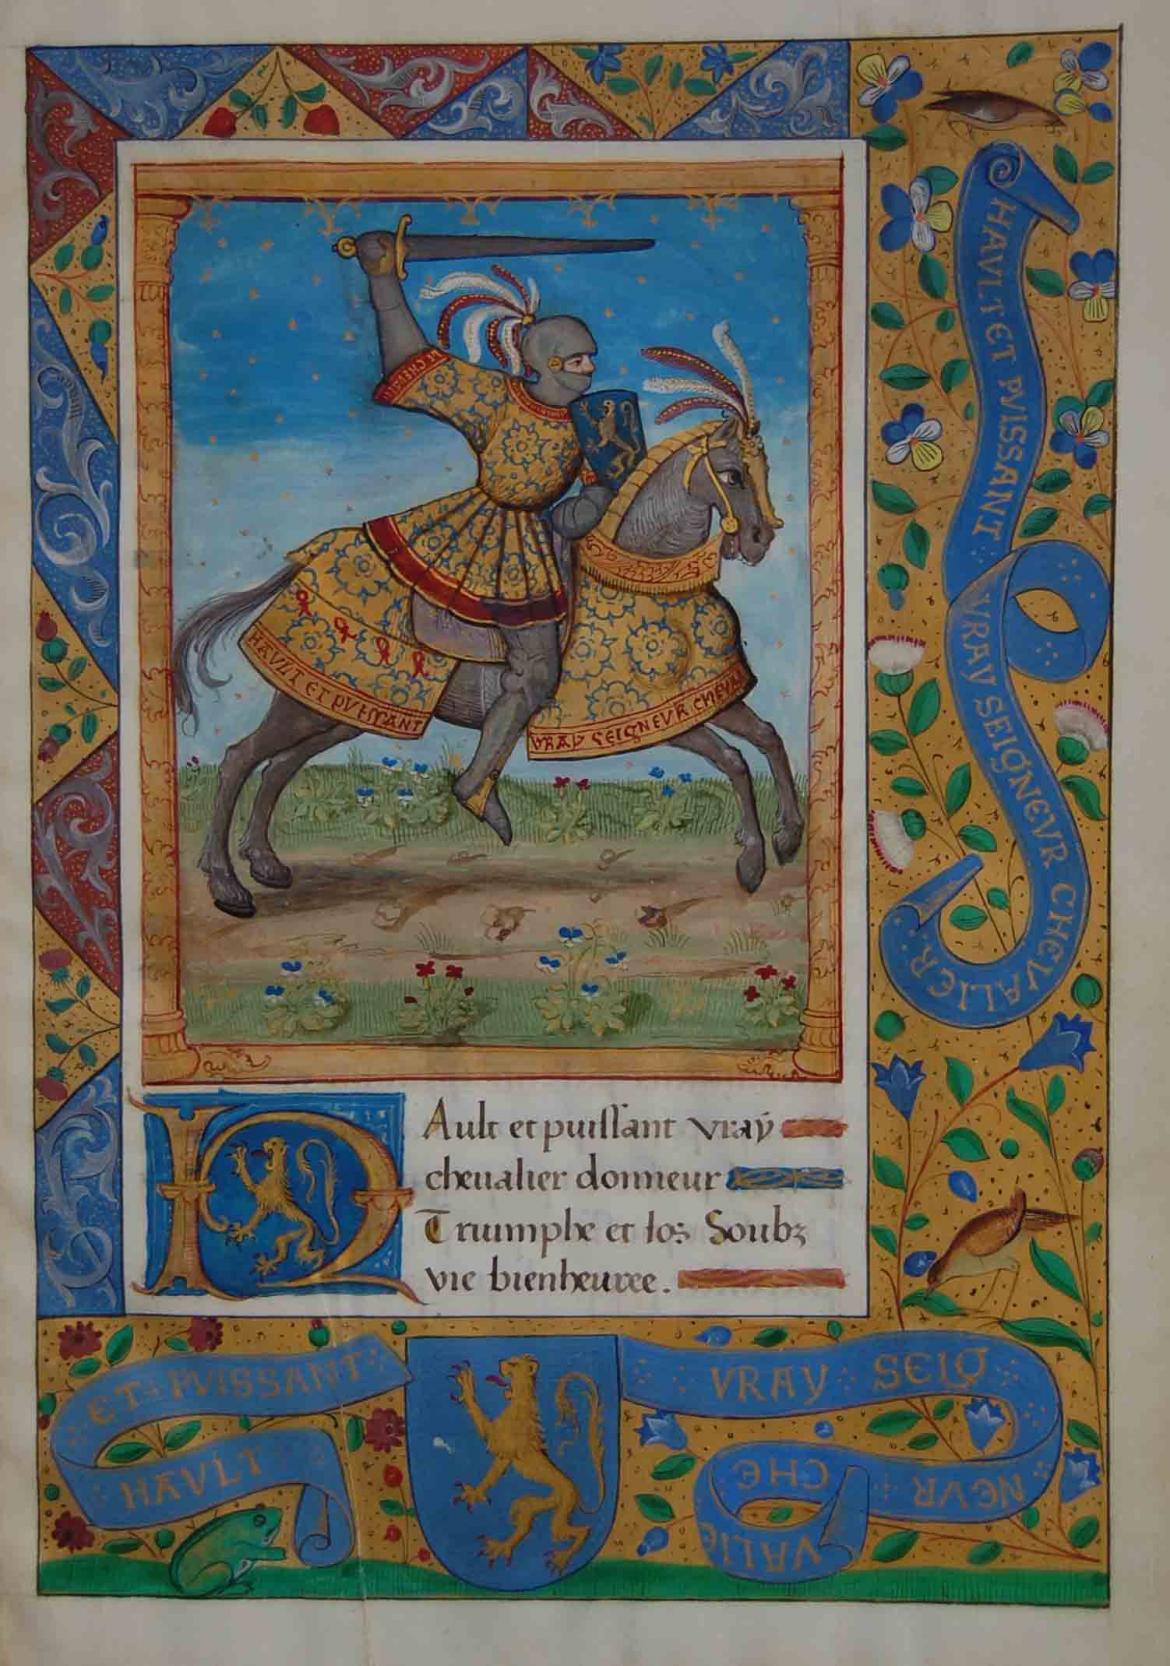 HAVLT ET PVISSANT VRAY SEIGNEVR CHEVALIER
HAVLT ET PVISSANT
VRAY SEIGNEVR CHEVAL
HAult et puissant vray
cheualier donneur
Triumphe et los Soubz
vie bienheuree.
HAVLT
ET PVISSANT
VRAY SEIG
NEVR
CHE
VALIE